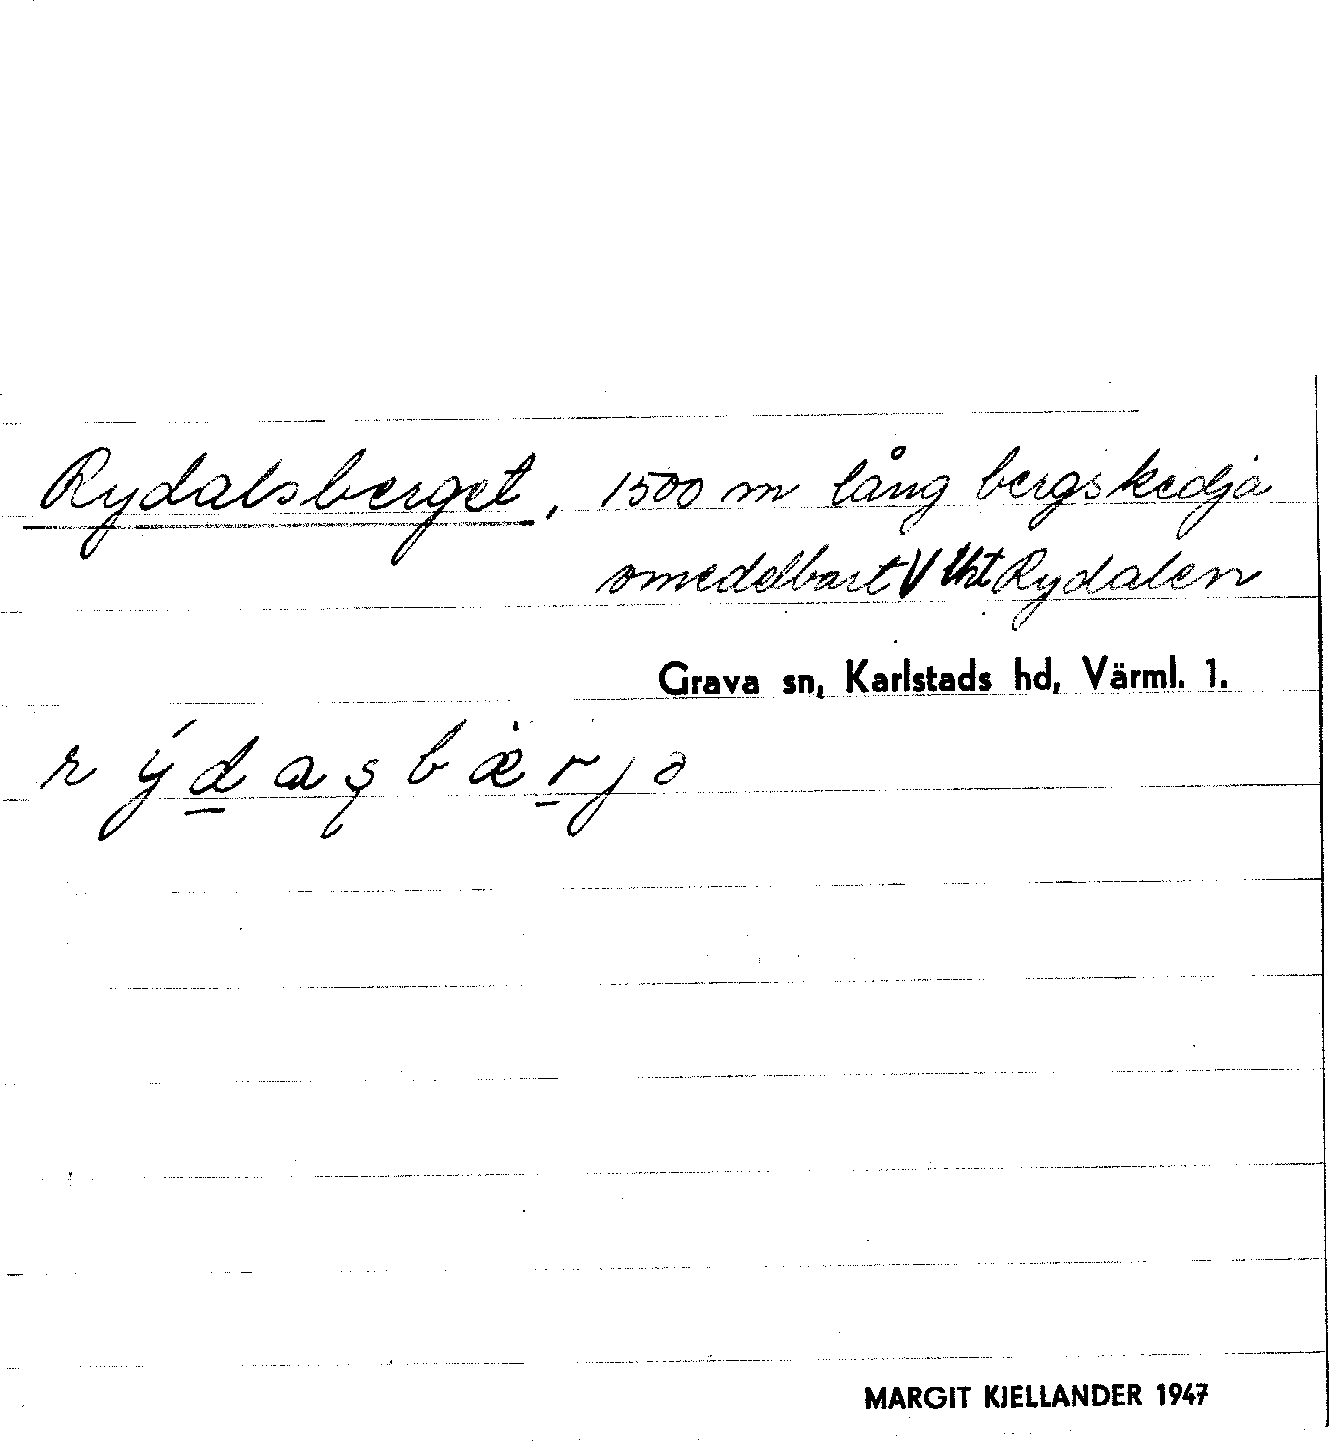 Rydalsberget, 1500 m lång bergskedja
omedelbart V tht Rydalen
Grava sn, Karlstads hd, Värml. 1.
rýdasbærjə
MARGIT KJELLANDER 1947